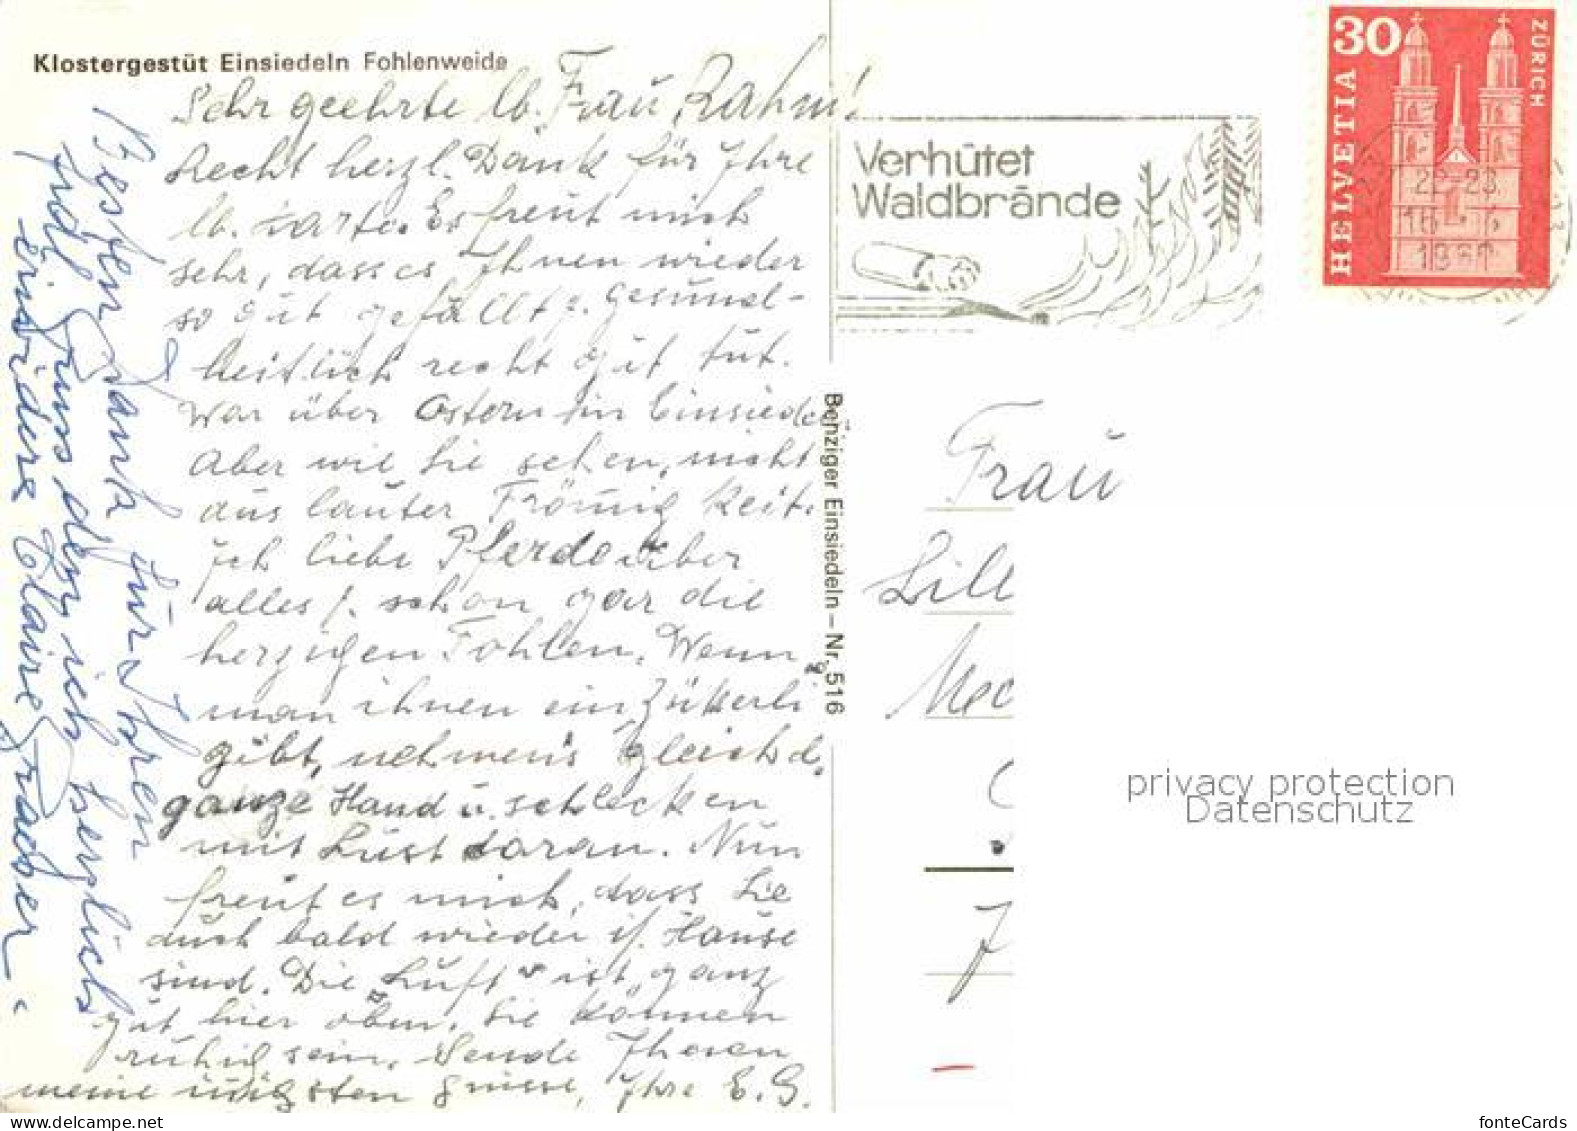 Klostergestüt Einsiedeln Fohlenweide
Sehr geehrte lb. Frau Rahm!
Recht herzl. Dank für Ihre
lb. Karte. Es freut mich
sehr, dass es Ihnen wieder
so gut gefällt u. gesund-
heitlich recht gut tut.
War über Ostern in Einsiedeln
Aber wie Sie sehen, nicht
aus lauter Frömmigkeit.
Ich liebe Pferde über
alles u. schon gar die
herzigen Fohlen. Wenn
man ihnen ein Zückerli
gibt, nehmen's gleich d.
ganze Hand u. schlecken
mit Lust daran. Nun
freut es mich, dass Sie
auch bald wieder i/. Hause
sind. Die Luft ist ganz
gut hier oben. Sie können
ruhig sein. Sende Ihnen
meine innigsten Grüsse, Ihre E. G.
Besten Dank für Ihren
frdl. Gruss den ich herzlich
erwidere Claire Graber.
Benziger Einsiedeln – Nr. 516
Verhütet
Waldbrände
30
ZÜRICH
HELVETIA
22-23
1967
Frau
Lill
Mec
7
privacy protection
Datenschutz
fonteCards